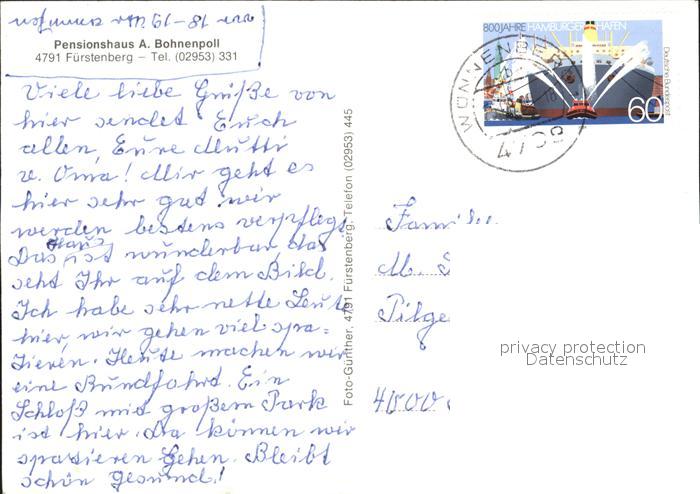 von 18-19 Uhr
Pensionshaus A. Bohnenpoll
4791 Fürstenberg – Tel. (02953) 331
Viele liebe Grüße von
hier sendet Euch
allen, Eure Mutti
u. Oma! Mir geht es
hier sehr gut wir
werden bestens verpflegt
Das Haus ist wunderbar, das
seht Ihr auf dem Bild.
Ich habe sehr nette Leute
hier, wir gehen viel spa=
zieren. Heute machen wir
eine Rundfahrt. Ein
Schloß mit großem Park
ist hier. Da können wir
spazieren gehen. Bleibt
schön gesund!
Foto-Günther, 4791 Fürstenberg, Telefon (02953) 445
800 JAHRE HAMBURGER HAFEN
Deutsche Bundespost
60
WÜNNENBERG
Fami
M. S
Pilge
privacy protection
Datenschutz